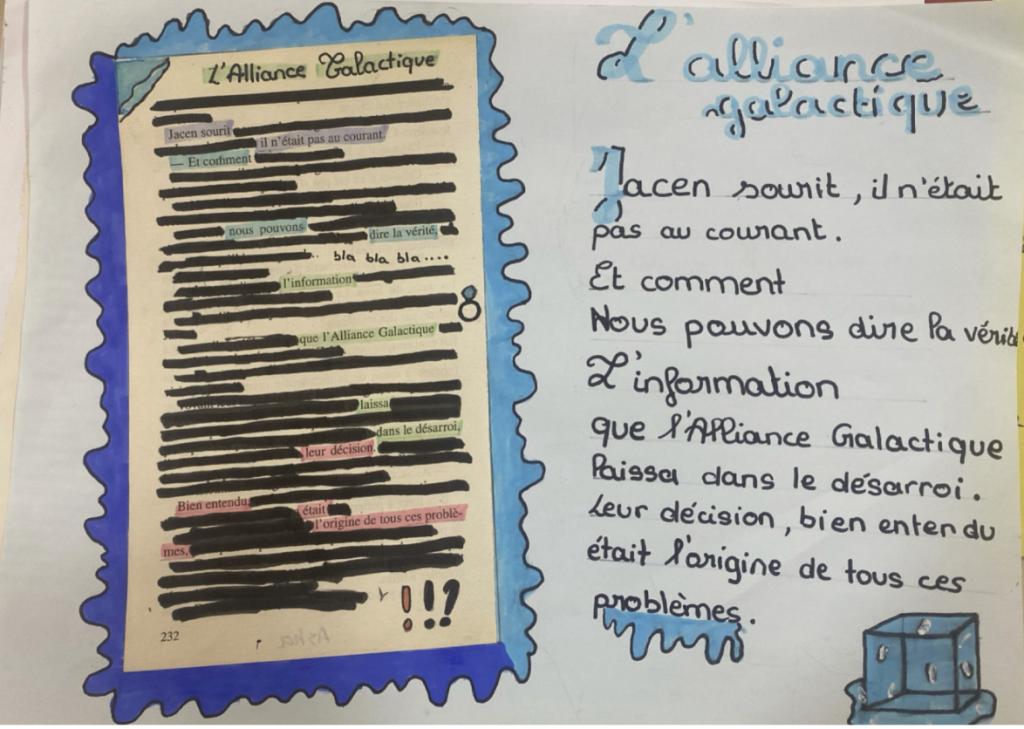 L'Alliance Galactique
Jacen sourit
il n'était pas au courant.
— Et comment
nous pouvons dire la vérité,
.. bla bla bla....
l'information
8
que l'Alliance Galactique
laissa
dans le désarroi,
leur décision.
Bien entendu était
l'origine de tous ces problè-
mes,
!!?
232
Asha
L'alliance
galactique
Jacen sourit, il n'était
pas au courant.
Et comment
Nous pouvons dire la vérité
L'information
que l'Alliance Galactique
laissa dans le désarroi.
Leur décision, bien entendu
était l'origine de tous ces
problèmes.